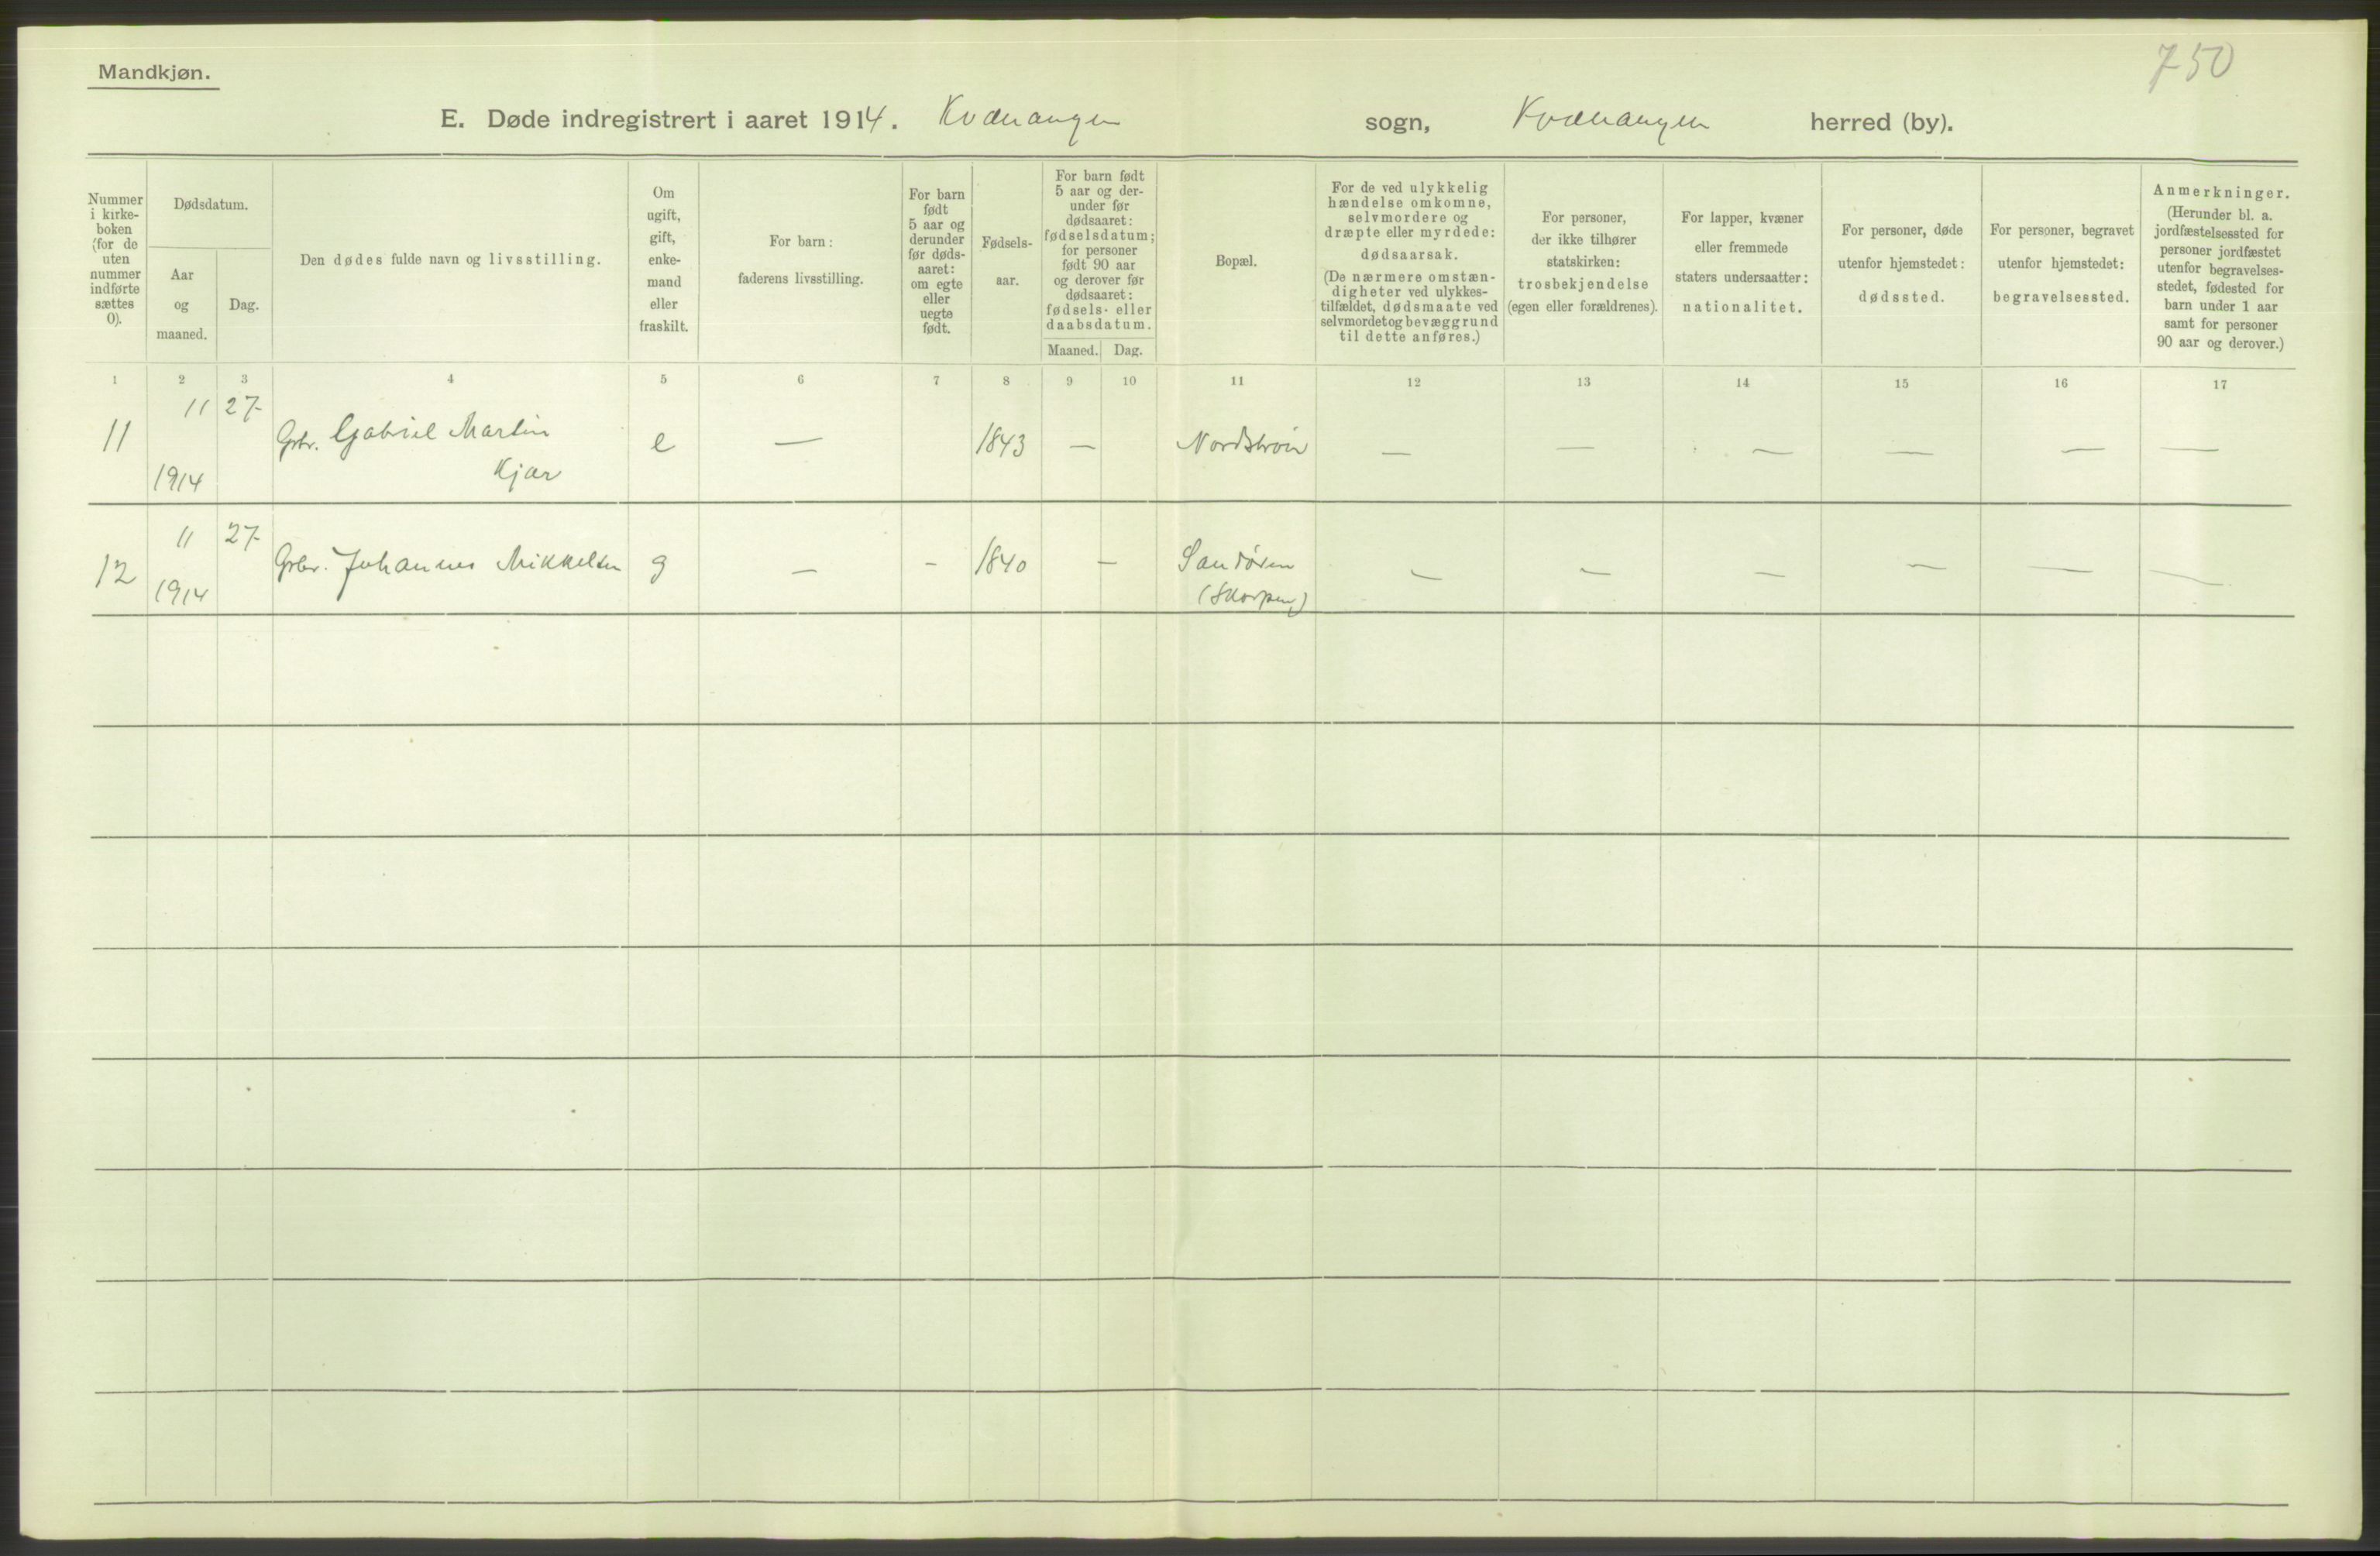 Mandkjøn.
750
E. Døde indregistrert i aaret 1914. Kvænangen sogn, Kvænangen herred (by).
Nummer
i kirke-
boken
(for de
uten
nummer
indførte
sættes
0).
Dødsdatum.
Aar
og
maaned.
Dag.
Den dødes fulde navn og livsstilling.
Om
ugift,
gift,
enke-
mand
eller
fraskilt.
For barn:
faderens livsstilling.
For barn
født
5 aar og
derunder
før døds-
aaret:
om egte
eller
uegte
født.
Fødsels-
aar.
For barn født
5 aar og der-
under før
dødsaaret:
fødselsdatum;
for personer
født 90 aar
og derover før
dødsaaret:
fødsels- eller
daabsdatum.
Maaned. Dag.
Bopæl.
For de ved ulykkelig
hændelse omkomne,
selvmordere og
dræpte eller myrdede:
dødsaarsak.
(De nærmere omstæn-
digheter ved ulykkes-
tilfældet, dødsmaate ved
selvmordet og bevæggrund
til dette anføres.)
For personer,
der ikke tilhører
statskirken:
trosbekjendelse
(egen eller forældrenes).
For lapper, kvæner
eller fremmede
staters undersaatter:
nationalitet.
For personer, døde
utenfor hjemstedet:
dødssted.
For personer, begravet
utenfor hjemstedet:
begravelsessted.
Anmerkninger.
(Herunder bl. a.
jordfæstelsessted for
personer jordfæstet
utenfor begravelses-
stedet, fødested for
barn under 1 aar
samt for personer
90 aar og derover.)
1 2 3 4 5 6 7 8 9 10 11 12 13 14 15 16 17
11 27
11 Grbr. Gabriel Martin e — 1843 — — — — — — —
1914 Kjær
11 27
12 Grbr. Johannes Mikkelsen g — - 1840 — Sandøren — — — — — —
1914 (Skorpen)